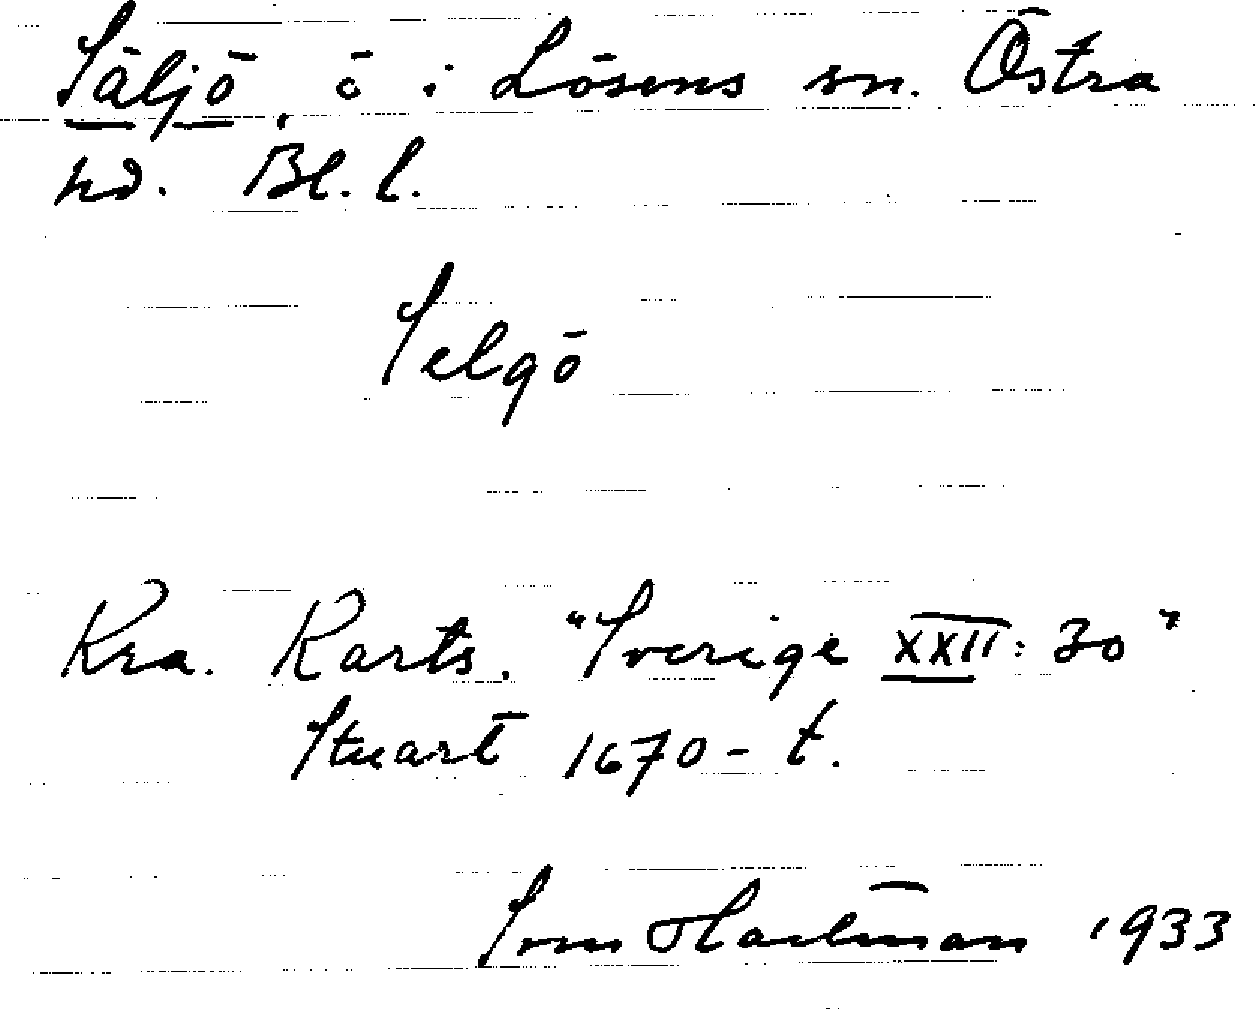 Säljö, ö i Lösens sn. Östra
hd. Bl. l.
Selgö
Kra. Karts. "Sverige XXII: 30"
Stuart 1670-t.
Sven Hartman 1933